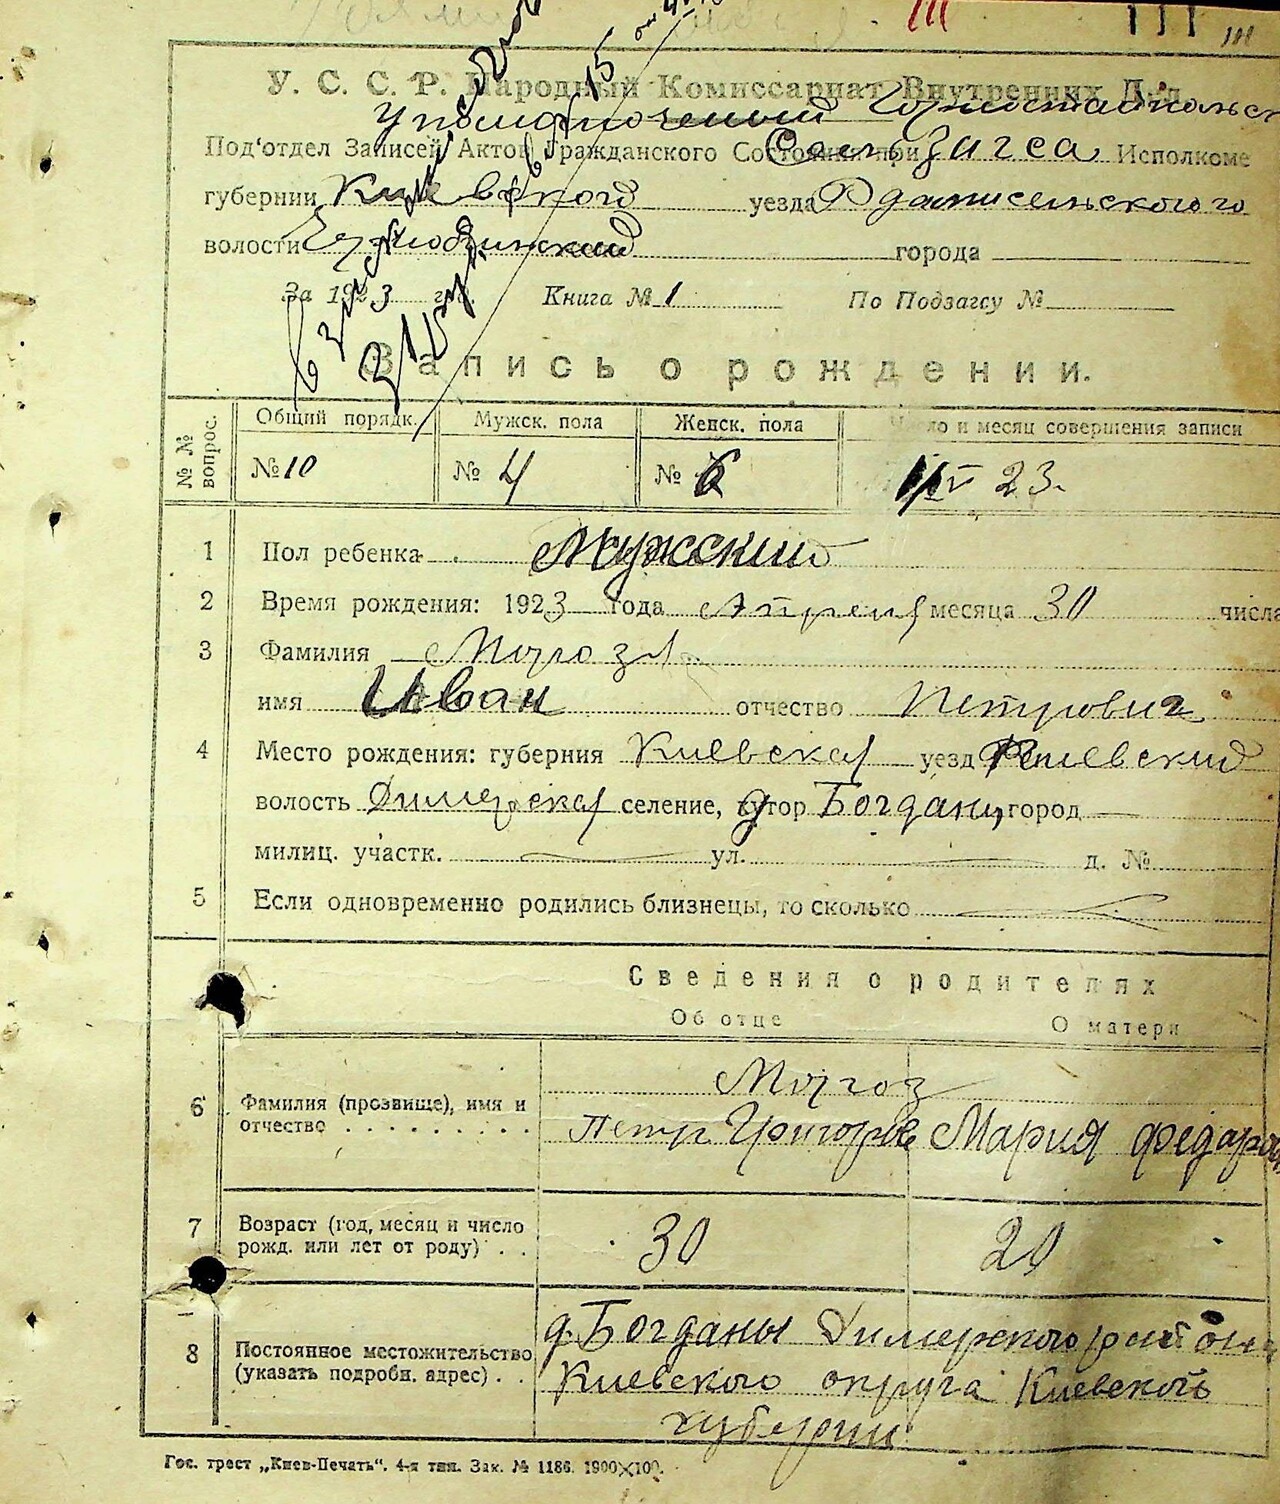 111 111 111
У. С. С. Р. Народный Комиссариат Внутренних Дел
Уполномоченный Горностайпольск
Под'отдел Записей Актов Гражданского Состояния при Сель Загса Исполкоме
губернии Киевской уезда
волости города
За 1923 год. Книга № 1 По Подзагсу №
Запись о рождении.
№№ вопрос. Общий порядк. Мужск. пола Женск. пола Число и месяц совершения записи
№ 10 № 4 № 6 V 23.
1 Пол ребенка Мужский
2 Время рождения: 1923 года Апреля месяца 30 числа
3 Фамилия Мороз
имя Иван отчество Петрович
4 Место рождения: губерния Киевская уезд Киевский
волость Димерская селение, хутор д Богданы город
милиц. участк. ул. д. №
5 Если одновременно родились близнецы, то сколько
Сведения о родителях
Об отце О матери
Мороз
6 Фамилия (прозвище), имя и отчество Петр Григоров Мария Федаров
7 Возраст (год, месяц и число рожд. или лет от роду) 30 20
8 Постоянное местожительство (указать подробн. адрес) д. Богданы Димерского района
Киевского округа Киевской
губернии
Гос. трест „Киев-Печать". 4-я тип. Зак. № 1186. 1900×100.